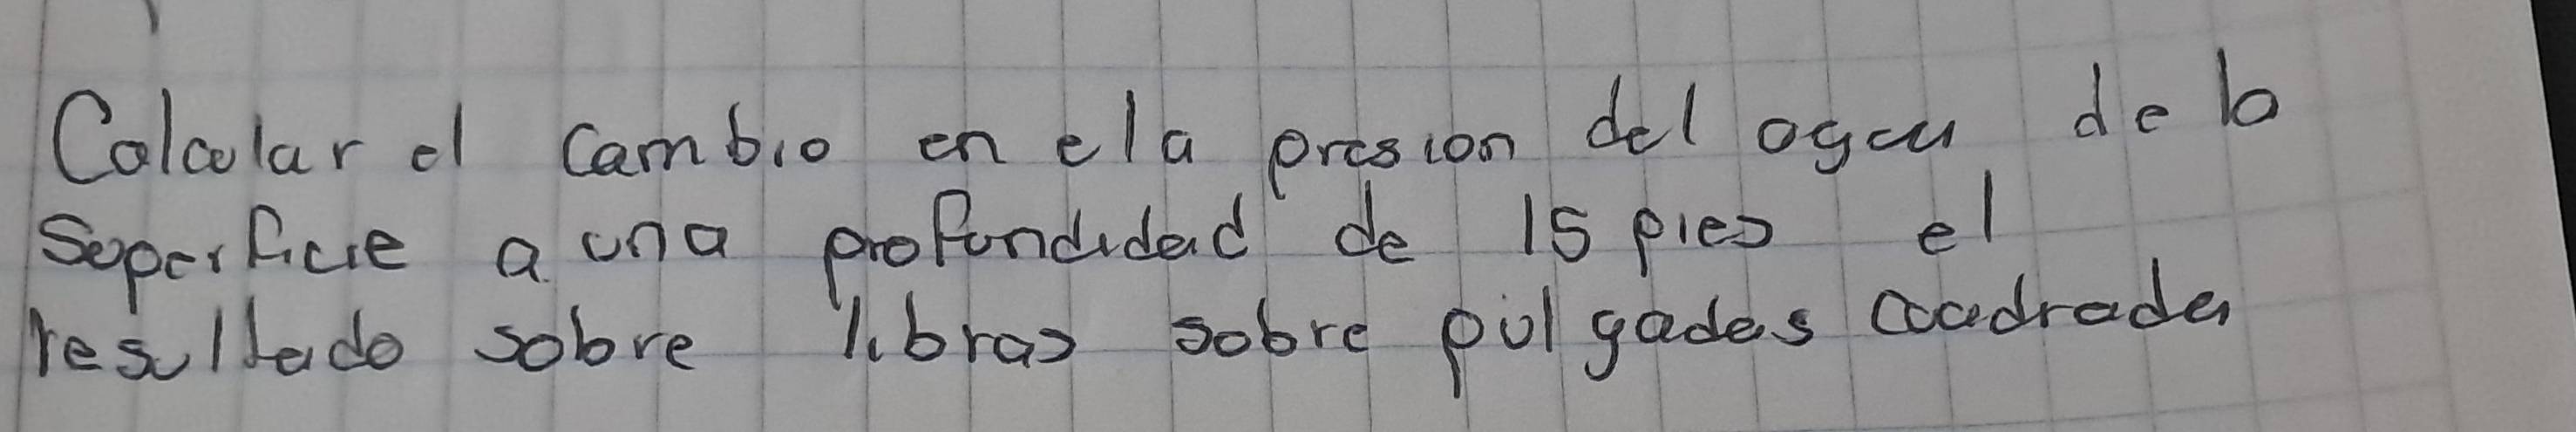 Colcular el cambio en ela presion del agua de la
Superficie a una profundidad de 15 pies el
resultado sobre libras sobre pulgadas cuadrada